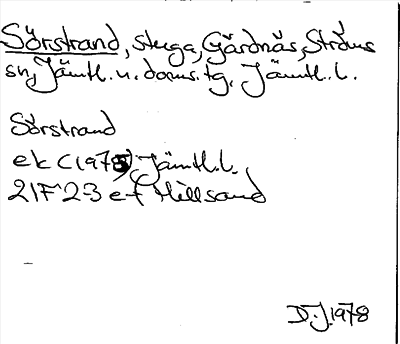 Sörstrand, stuga, Gärdnäs, Ströms
sn, Jämtl. n. doms.tg, Jämtl. l.
Sörstrand
ek C (1975), Jämtl. l.
21F 2-3 e-f Hillsand
D.J. 1978